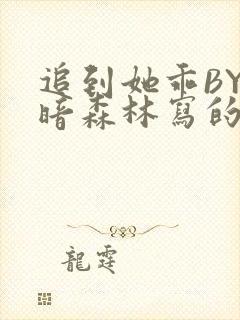 追到她乖BY
暗森林寫的
龍霆